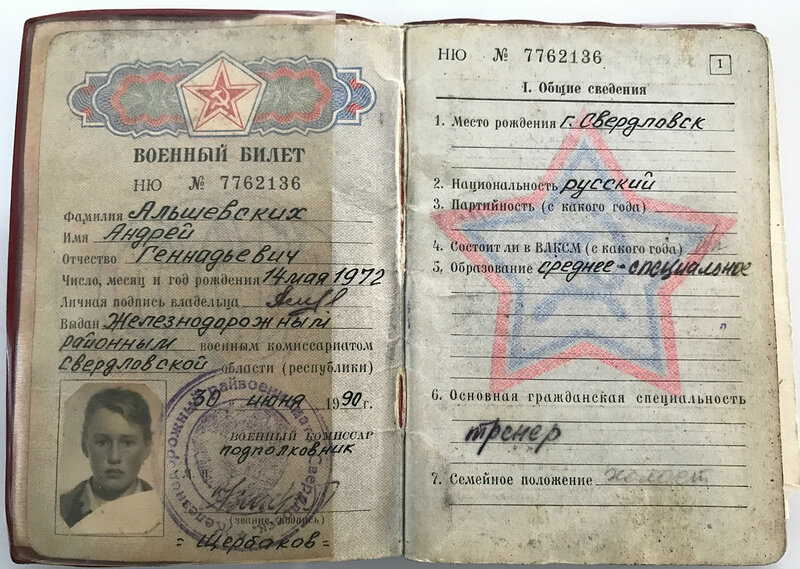 ВОЕННЫЙ БИЛЕТ
НЮ № 7762136
Фамилия Альшевских
Имя Андрей
Отчество Геннадьевич
Число, месяц и год рождения 14 мая 1972
Личная подпись владельца
Выдан Железнодорожным
районным военным комиссариатом
Свердловской области (республики)
30 июня 1990 г.
ВОЕННЫЙ КОМИССАР
подполковник
М. П.
(звание, подпись)
= Щербаков =
НЮ № 7762136
1
I. Общие сведения
1. Место рождения г. Свердловск
2. Национальность русский
3. Партийность (с какого года)
4. Состоит ли в ВЛКСМ (с какого года)
5. Образование среднее-специальное
6. Основная гражданская специальность
тренер
7. Семейное положение холост